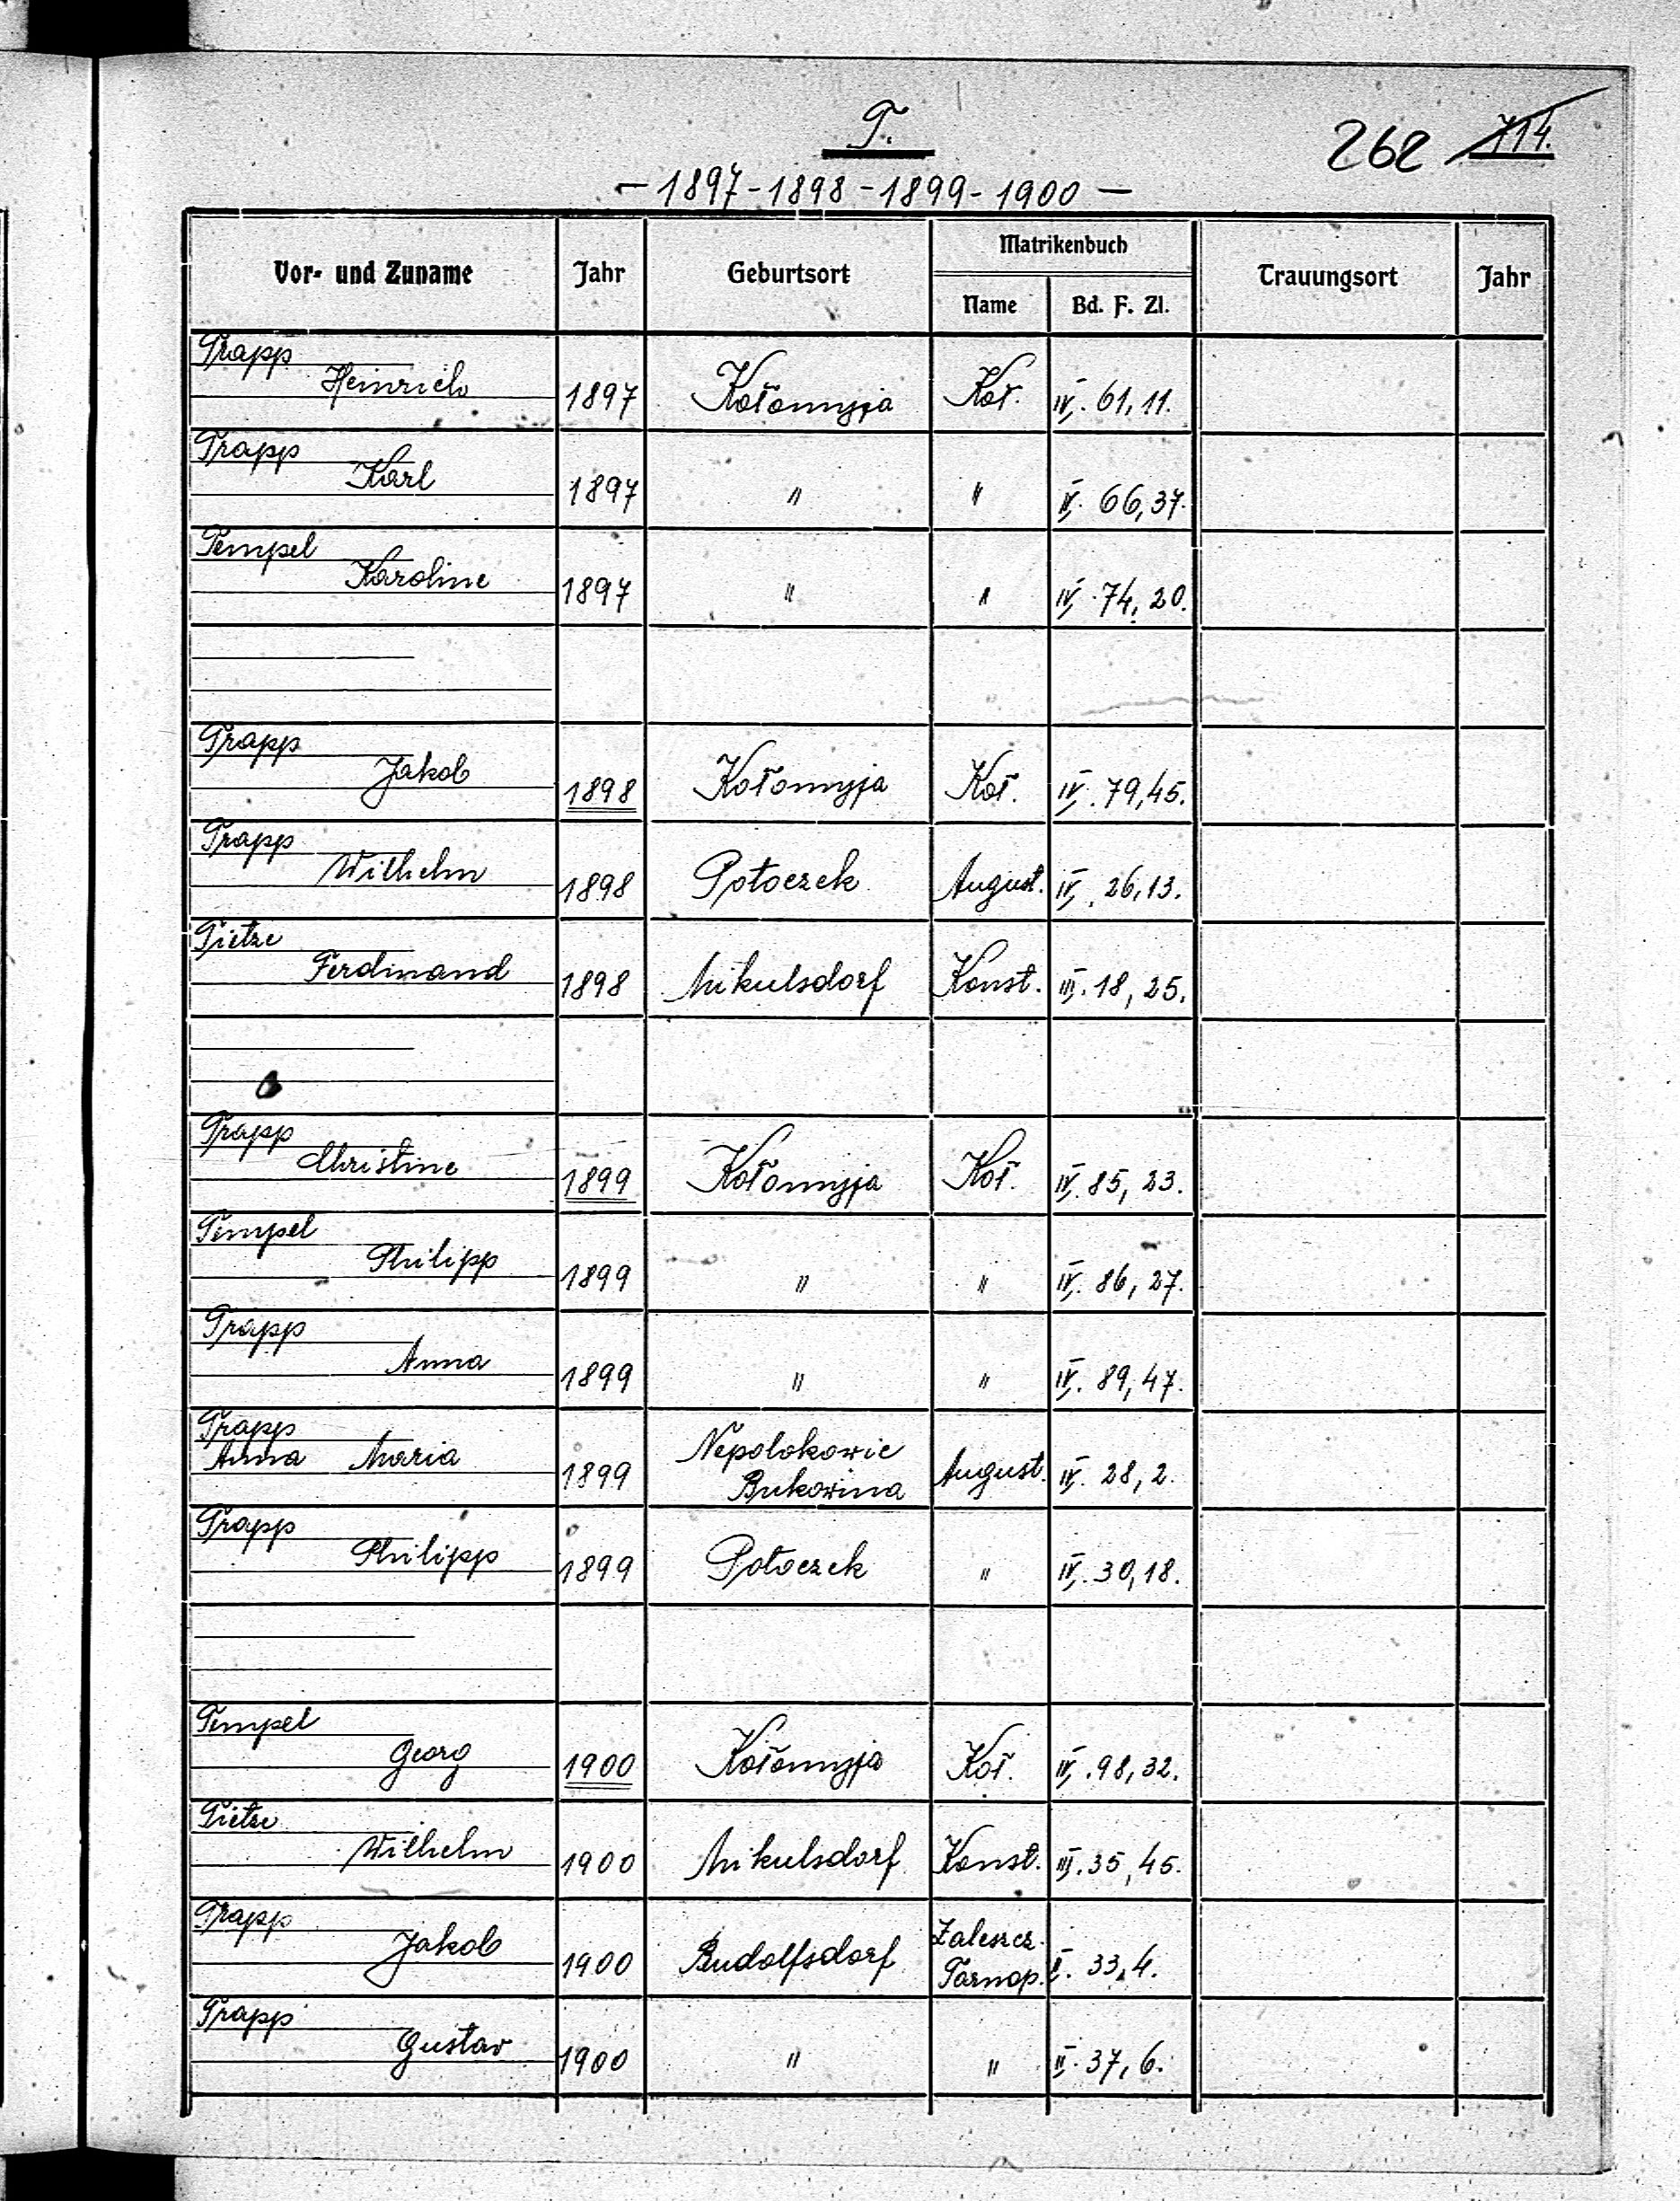 T.
262 714.
- 1897 - 1898 - 1899 - 1900 -
Vor- und Zuname Jahr Geburtsort Matrikenbuch Trauungsort Jahr
Name Bd. F. Zl.
Trapp
Heinrich 1897 Kołomyja Koł. IV. 61, 11.
Trapp
Karl 1897 " " IV. 66, 37.
Tempel
Karoline 1897 " " IV. 74, 20.
Trapp
Jakob 1898 Kołomyja Koł. IV. 79, 45.
Trapp
Wilhelm 1898 Potoczek August. IV. 26, 13.
Tietze
Ferdinand 1898 Mikulsdorf Konst. III. 18, 25.
Trapp
Christine 1899 Kołomyja Koł. IV. 85, 23.
Tempel
Philipp 1899 " " IV. 86, 27.
Trapp
Anna 1899 " " IV. 89, 47.
Trapp
Anna Maria 1899 Nepolokowie Bukowina August. IV. 28, 2.
Trapp
Philipp 1899 Potoczek " IV. 30, 18.
Tempel
Georg 1900 Kołomyja Koł. IV. 98, 32.
Tietze
Wilhelm 1900 Mikulsdorf Konst. III. 35, 45.
Trapp
Jakob 1900 Rudolfsdorf Zaleszcz. Tarnop. II. 33, 4.
Trapp
Gustav 1900 " " II. 37, 6.